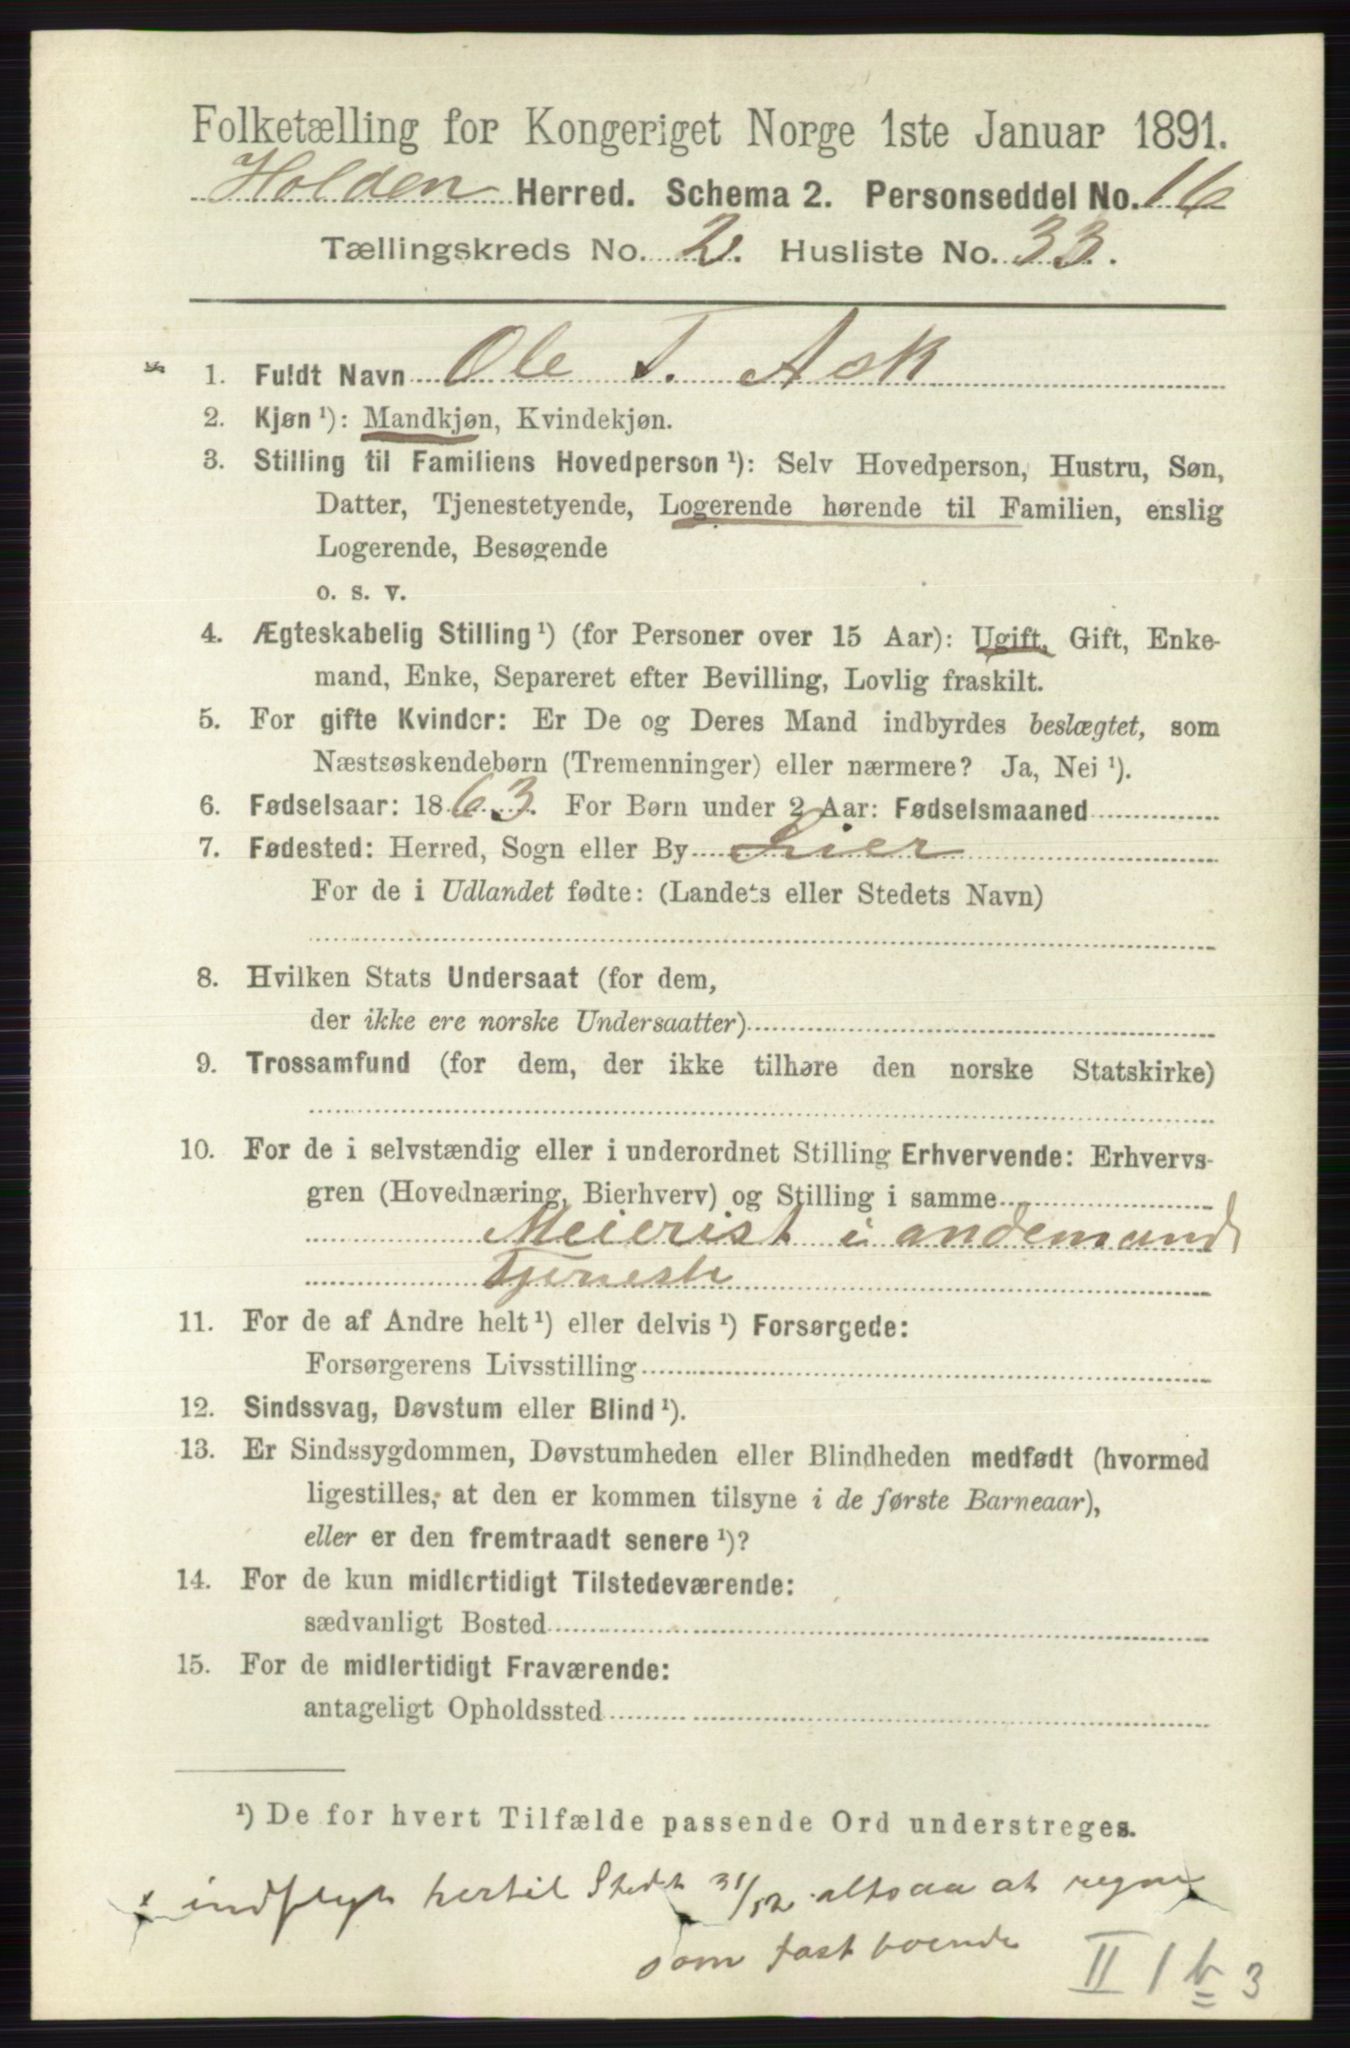 Folketælling for Kongeriget Norge 1ste Januar 1891.
Holden Herred. Schema 2. Personseddel No. 16
Tællingskreds No. 2. Husliste No. 33.
1. Fuldt Navn Ole T. Ask
2. Kjøn ¹): Mandkjøn, Kvindekjøn.
3. Stilling til Familiens Hovedperson ¹): Selv Hovedperson, Hustru, Søn,
Datter, Tjenestetyende, Logerende hørende til Familien, enslig
Logerende, Besøgende
o. s. v.
4. Ægteskabelig Stilling ¹) (for Personer over 15 Aar): Ugift, Gift, Enke-
mand, Enke, Separeret efter Bevilling, Lovlig fraskilt.
5. For gifte Kvinder: Er De og Deres Mand indbyrdes beslægtet, som
Næstsøskendebørn (Tremenninger) eller nærmere? Ja, Nei ¹).
6. Fødselsaar: 1863. For Børn under 2 Aar: Fødselsmaaned
7. Fødested: Herred, Sogn eller By Lier
For de i Udlandet fødte: (Landets eller Stedets Navn)
8. Hvilken Stats Undersaat (for dem,
der ikke ere norske Undersaatter)
9. Trossamfund (for dem, der ikke tilhøre den norske Statskirke)
10. For de i selvstændig eller i underordnet Stilling Erhvervende: Erhvervs-
gren (Hovednæring, Bierhverv) og Stilling i samme
Meierist i andemands
Tjeneste
11. For de af Andre helt ¹) eller delvis ¹) Forsørgede:
Forsørgerens Livsstilling
12. Sindssvag, Døvstum eller Blind ¹).
13. Er Sindssygdommen, Døvstumheden eller Blindheden medfødt (hvormed
ligestilles, at den er kommen tilsyne i de første Barneaar),
eller er den fremtraadt senere ¹)?
14. For de kun midlertidigt Tilstedeværende:
sædvanligt Bosted
15. For de midlertidigt Fraværende:
antageligt Opholdssted
¹) De for hvert Tilfælde passende Ord understreges.
x indflyt hertil Stedet 31/12 altsaa at regne
som fast boende
II 1 b 3